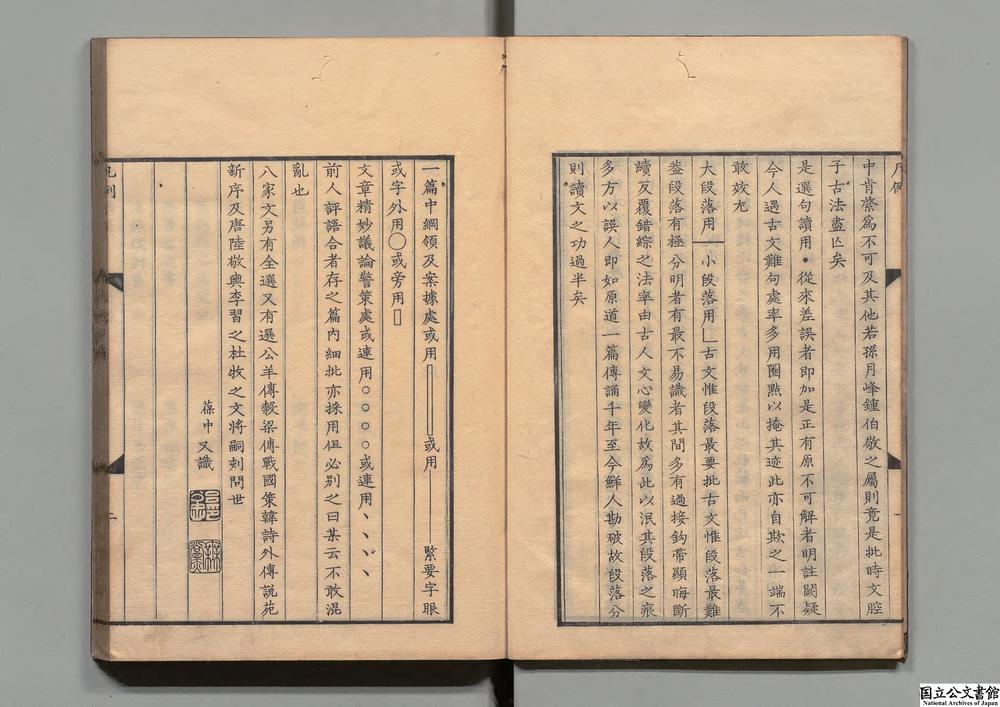 凡例
中肯綮爲不可及其他若孫月峰鍾伯敬之屬則竟是批時文腔
子古法盡亾矣
是選句讀用•從來差誤者即加是正有原不可解者明註闕疑
今人遇古文難句處率多用圈㸃以掩其迹此亦自欺之一端不
敢效尤
大段落用——小段落用∟古文惟段落最要批古文惟段落最難
葢段落有極分明者有最不易識者其間多有過接鈎帶顯晦斷
續反覆錯綜之法率由古人文心變化故爲此以泯其段落之痕
多方以誤人即如原道一篇傳誦千年至今鮮人勘破故段落分
則讀文之功過半矣
一篇中綱領及案據處或用▯或用——緊要字眼
或字外用◯或旁用▯
文章精妙議論警策處或連用○○○○或連用丶丶丶丶
前人評語合者存之篇內細批亦採用但必別之曰某云不敢混
亂也
八家文另有全選又有選公羊傳穀梁傳戰國策韓詩外傳說苑
新序及唐陸敬輿李習之杜牧之文將嗣刻問世
葆中又識
凡例
二
国立公文書館
National Archives of Japan